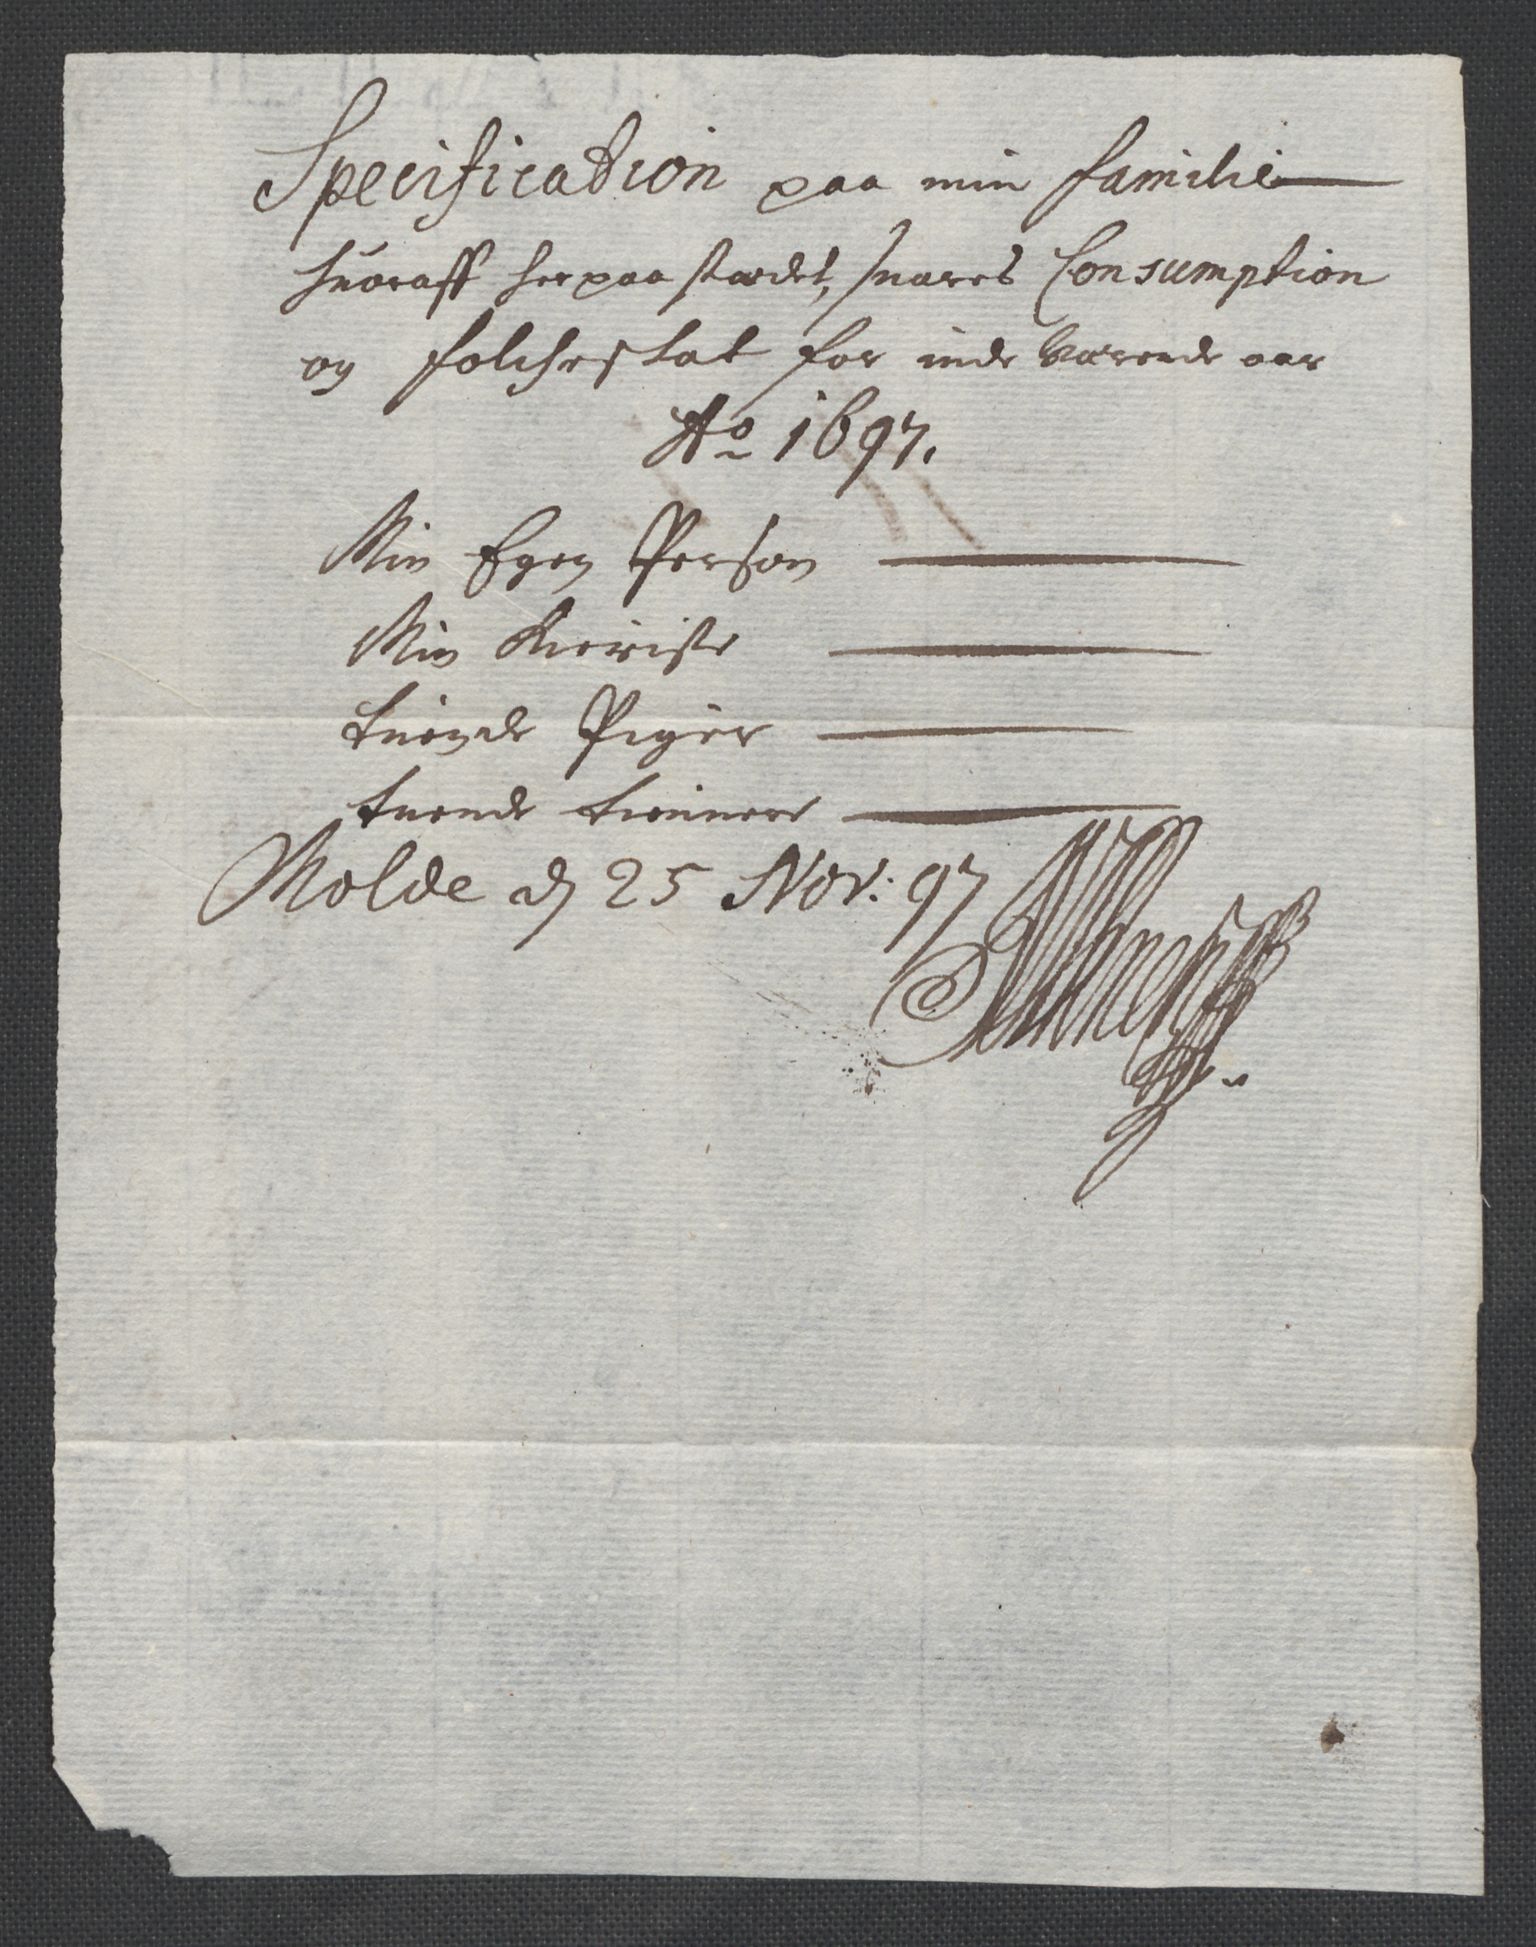 Specification paa min familie
huoraff her paa stædet, suares Consumption
og folcheskat for inde værende aar
Ao 1697.
Min Egen Person
Min Kieriste
tuende Piger
tuende tienner
Molde d 25 Nov: 97